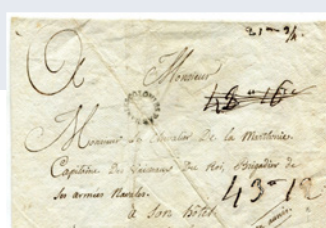 21-2/4
A Monsieur
48 - 16
Monsieur Le Chevalier De la
Capitaine Des Vaisseaux Du Roi, Brigadier de
Ses armees Navales.
43-12
à son hôtel